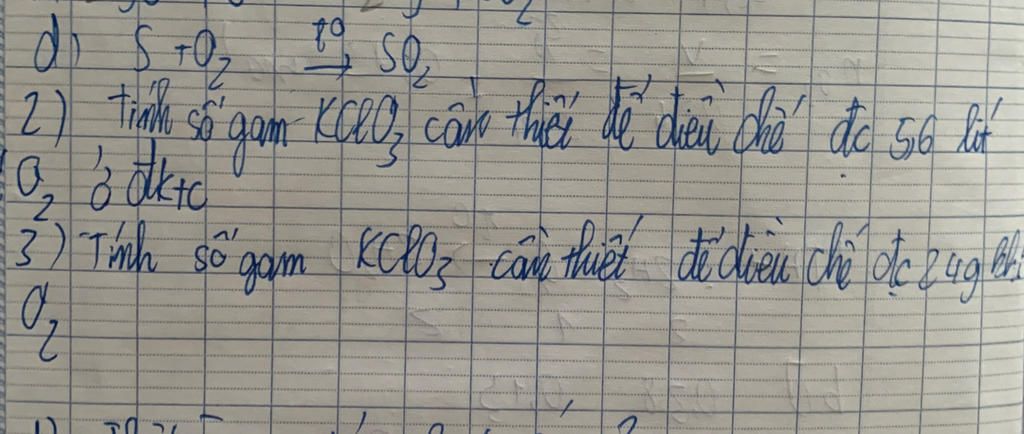 d) S + O₂ t⁰→ SO₂
2) Tính số gam KClO₃ cần thiết để điều chế đc 5,6 lít
O₂ ở đktc
3) Tính số gam KClO₃ cần thiết để điều chế đc 24g khí
O₂